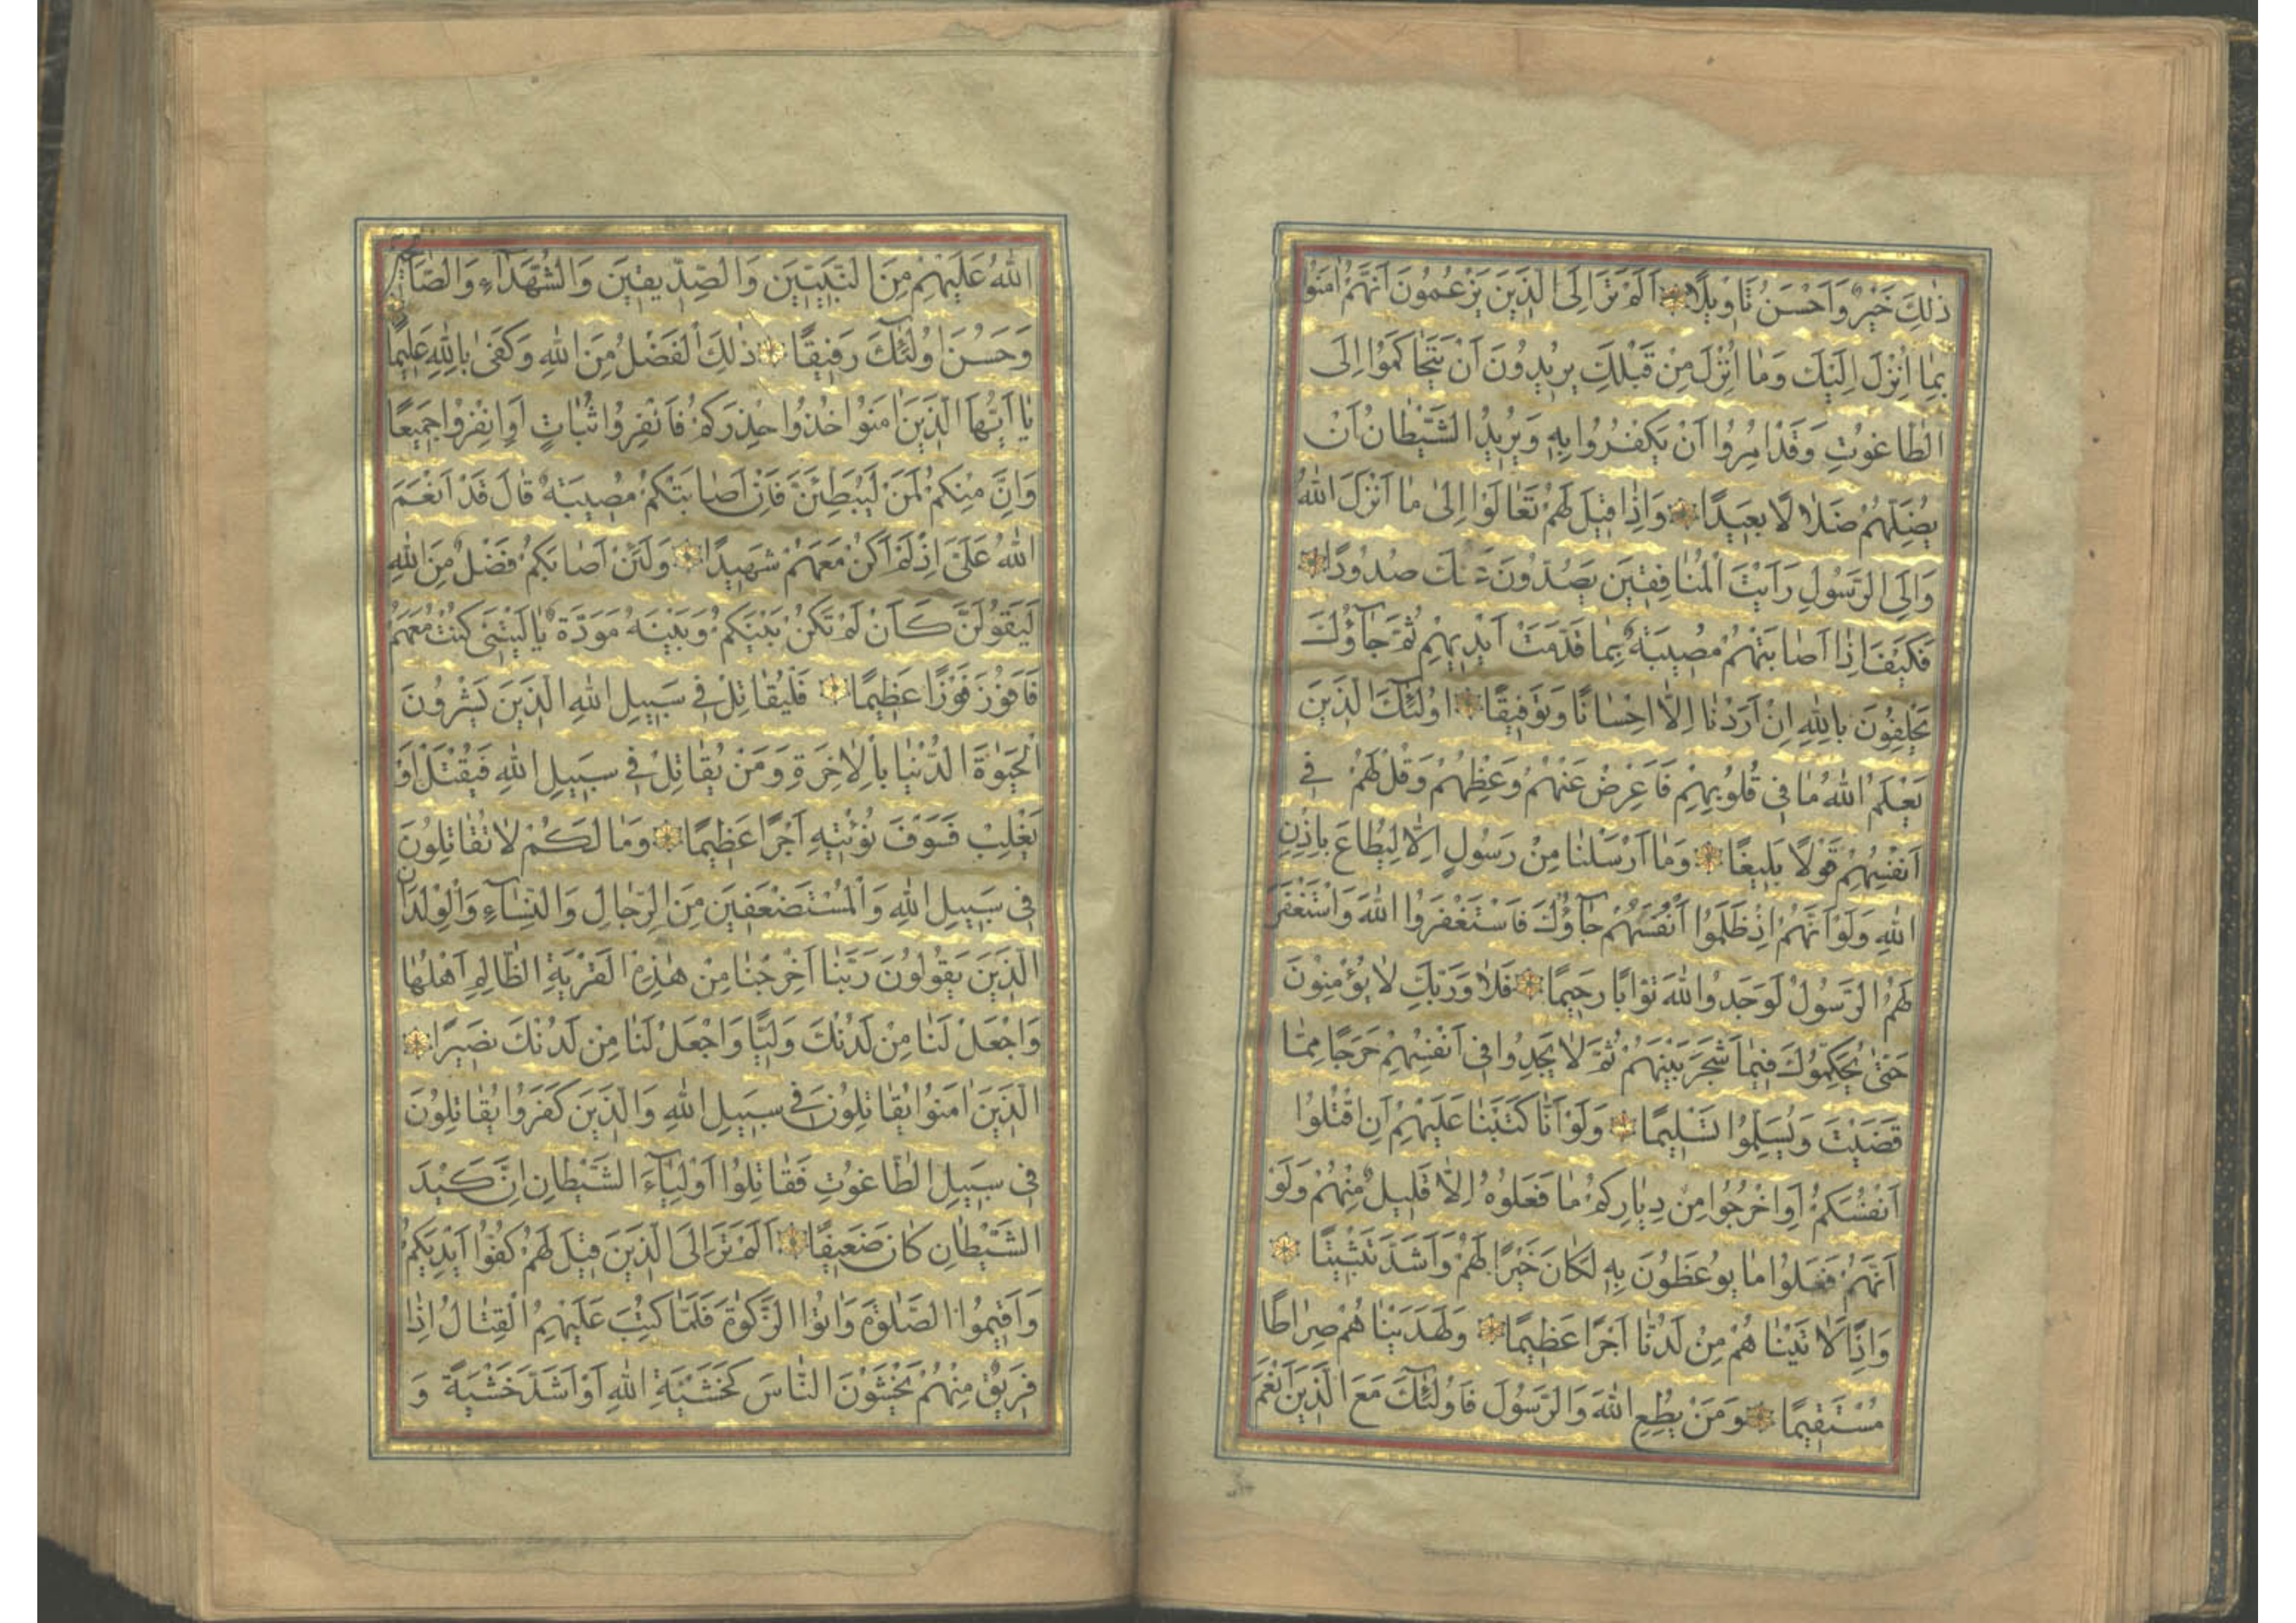 ذٰلِكَ خَيْرٌ وَاَحْسَنُ تَأوِيلًا اَلَمْ تَرَ اِلَى الَّذِينَ يَزْعُمُونَ اَنَّهُمْ اٰمَنُوا
بِمَا اُنْزِلَ اِلَيْكَ وَمَا اُنْزِلَ مِنْ قَبْلِكَ يُرِيدُونَ اَنْ يَتَحَاكَمُوا اِلَى
الطَّاغُوتِ وَقَدْ اُمِرُوا اَنْ يَكْفُرُوا بِهِ وَيُرِيدُ الشَّيْطَانُ اَنْ
يُضِلَّهُمْ ضَلَالًا بَعِيدًا وَاِذَا قِيلَ لَهُمْ تَعَالَوْا اِلٰى مَا اَنْزَلَ اللّٰهُ
وَاِلَى الرَّسُولِ رَاَيْتَ الْمُنَافِقِينَ يَصُدُّونَ عَنْكَ صُدُودًا
فَكَيْفَ اِذَا اَصَابَتْهُمْ مُصِيبَةٌ بِمَا قَدَّمَتْ اَيْدِيهِمْ ثُمَّ جَاؤُكَ
يَحْلِفُونَ بِاللّٰهِ اِنْ اَرَدْنَا اِلَّا اِحْسَانًا وَتَوْفِيقًا اُولٰئِكَ الَّذِينَ
يَعْلَمُ اللّٰهُ مَا فِي قُلُوبِهِمْ فَاَعْرِضْ عَنْهُمْ وَعِظْهُمْ وَقُلْ لَهُمْ فِي
اَنْفُسِهِمْ قَوْلًا بَلِيغًا وَمَا اَرْسَلْنَا مِنْ رَسُولٍ اِلَّا لِيُطَاعَ بِاِذْنِ
اللّٰهِ وَلَوْ اَنَّهُمْ اِذْ ظَلَمُوا اَنْفُسَهُمْ جَاؤُكَ فَاسْتَغْفَرُوا اللّٰهَ وَاسْتَغْفَرَ
لَهُمُ الرَّسُولُ لَوَجَدُوا اللّٰهَ تَوَّابًا رَحِيمًا فَلَا وَرَبِّكَ لَا يُؤْمِنُونَ
حَتّٰى يُحَكِّمُوكَ فِيمَا شَجَرَ بَيْنَهُمْ ثُمَّ لَا يَجِدُوا فِي اَنْفُسِهِمْ حَرَجًا مِمَّا
قَضَيْتَ وَيُسَلِّمُوا تَسْلِيمًا وَلَوْ اَنَّا كَتَبْنَا عَلَيْهِمْ اَنِ اقْتُلُوا
اَنْفُسَكُمْ اَوِ اخْرُجُوا مِنْ دِيَارِكُمْ مَا فَعَلُوهُ اِلَّا قَلِيلٌ مِنْهُمْ وَلَوْ
اَنَّهُمْ فَعَلُوا مَا يُوعَظُونَ بِهِ لَكَانَ خَيْرًا لَهُمْ وَاَشَدَّ تَثْبِيتًا
وَاِذًا لَاٰتَيْنَاهُمْ مِنْ لَدُنَّا اَجْرًا عَظِيمًا وَلَهَدَيْنَاهُمْ صِرَاطًا
مُسْتَقِيمًا وَمَنْ يُطِعِ اللّٰهَ وَالرَّسُولَ فَاُولٰئِكَ مَعَ الَّذِينَ اَنْعَمَ
اللّٰهُ عَلَيْهِمْ مِنَ النَّبِيِّينَ وَالصِّدِّيقِينَ وَالشُّهَدَاءِ وَالصَّالِحِينَ
وَحَسُنَ اُولٰئِكَ رَفِيقًا ذٰلِكَ الْفَضْلُ مِنَ اللّٰهِ وَكَفٰى بِاللّٰهِ عَلِيمًا
يَا اَيُّهَا الَّذِينَ اٰمَنُوا خُذُوا حِذْرَكُمْ فَانْفِرُوا ثُبَاتٍ اَوِ انْفِرُوا جَمِيعًا
وَاِنَّ مِنْكُمْ لَمَنْ لَيُبَطِّئَنَّ فَاِنْ اَصَابَتْكُمْ مُصِيبَةٌ قَالَ قَدْ اَنْعَمَ
اللّٰهُ عَلَيَّ اِذْ لَمْ اَكُنْ مَعَهُمْ شَهِيدًا وَلَئِنْ اَصَابَكُمْ فَضْلٌ مِنَ اللّٰهِ
لَيَقُولَنَّ كَاَنْ لَمْ تَكُنْ بَيْنَكُمْ وَبَيْنَهُ مَوَدَّةٌ يَالَيْتَنِي كُنْتُ مَعَهُمْ
فَاَفُوزَ فَوْزًا عَظِيمًا فَلْيُقَاتِلْ فِي سَبِيلِ اللّٰهِ الَّذِينَ يَشْرُونَ
الْحَيٰوةَ الدُّنْيَا بِالْاٰخِرَةِ وَمَنْ يُقَاتِلْ فِي سَبِيلِ اللّٰهِ فَيُقْتَلْ اَوْ
يَغْلِبْ فَسَوْفَ نُؤْتِيهِ اَجْرًا عَظِيمًا وَمَا لَكُمْ لَا تُقَاتِلُونَ
فِي سَبِيلِ اللّٰهِ وَالْمُسْتَضْعَفِينَ مِنَ الرِّجَالِ وَالنِّسَاءِ وَالْوِلْدَانِ
الَّذِينَ يَقُولُونَ رَبَّنَا اَخْرِجْنَا مِنْ هٰذِهِ الْقَرْيَةِ الظَّالِمِ اَهْلُهَا
وَاجْعَلْ لَنَا مِنْ لَدُنْكَ وَلِيًّا وَاجْعَلْ لَنَا مِنْ لَدُنْكَ نَصِيرًا
الَّذِينَ اٰمَنُوا يُقَاتِلُونَ فِي سَبِيلِ اللّٰهِ وَالَّذِينَ كَفَرُوا يُقَاتِلُونَ
فِي سَبِيلِ الطَّاغُوتِ فَقَاتِلُوا اَوْلِيَاءَ الشَّيْطَانِ اِنَّ كَيْدَ
الشَّيْطَانِ كَانَ ضَعِيفًا اَلَمْ تَرَ اِلَى الَّذِينَ قِيلَ لَهُمْ كُفُّوا اَيْدِيَكُمْ
وَاَقِيمُوا الصَّلٰوةَ وَاٰتُوا الزَّكٰوةَ فَلَمَّا كُتِبَ عَلَيْهِمُ الْقِتَالُ اِذَا
فَرِيقٌ مِنْهُمْ يَخْشَوْنَ النَّاسَ كَخَشْيَةِ اللّٰهِ اَوْ اَشَدَّ خَشْيَةً وَ